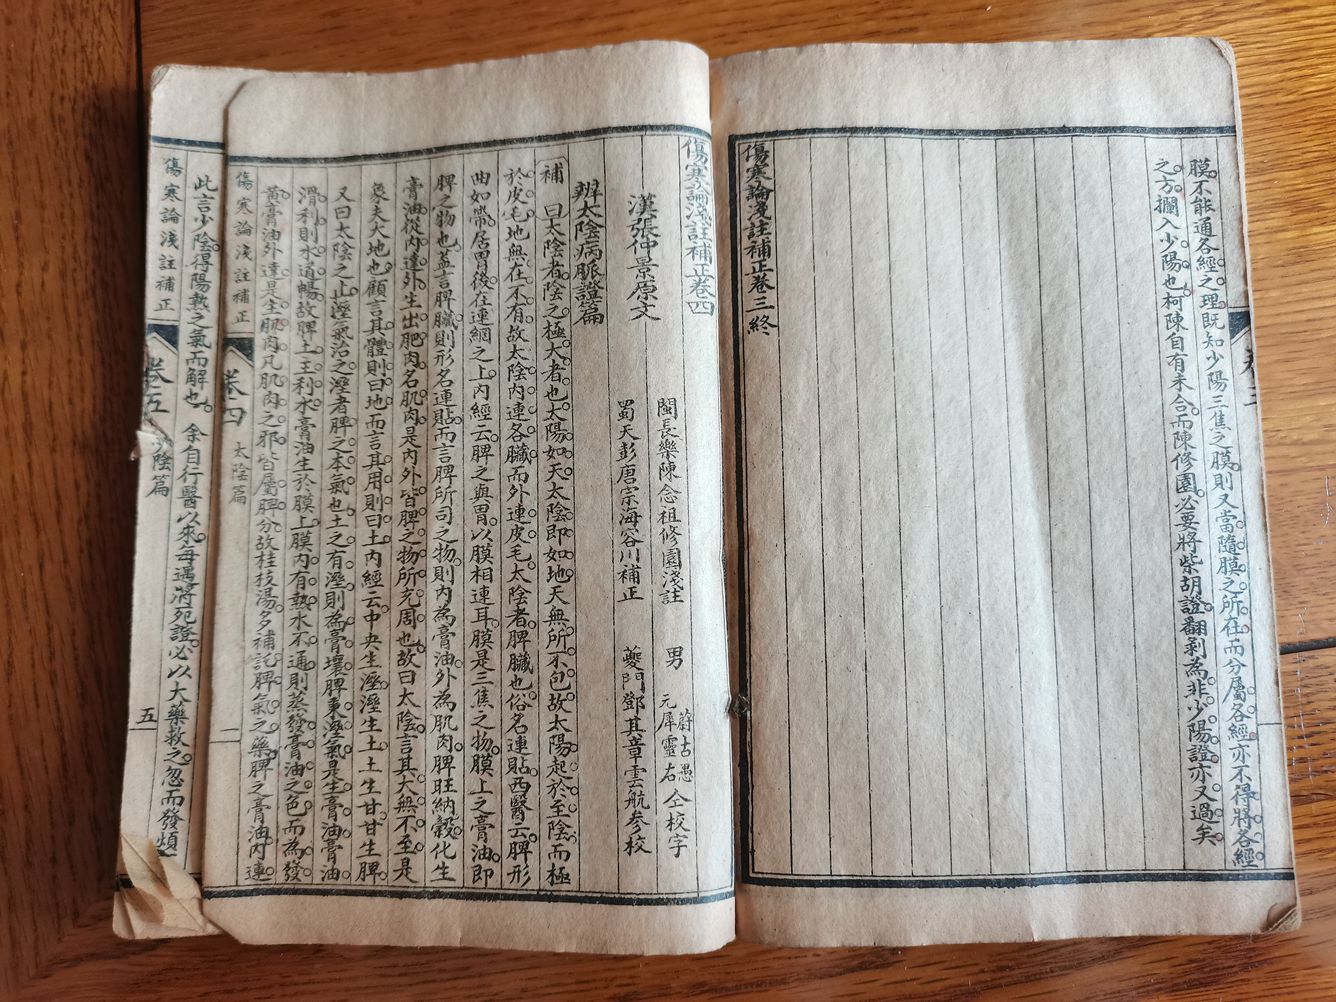 膜不能通各經之理既知少陽三焦之膜則又當隨膜之所在而分屬各經亦不得將各經
之方攔入少陽也柯陳自有未合而陳修園必要將柴胡證翻剝為非少陽證亦又過矣
傷寒論淺註補正卷三終
傷寒論淺註補正卷四
漢張仲景原文
閩長樂陳念祖修園淺註
男
蔚古愚
元犀靈石
仝校字
蜀天彭唐宗海容川補正
夔門鄧其章雲航參校
辨太陰病脈證篇
補曰太陰者陰之極大者也太陽如天太陰即如地天無所不包故太陽起於至陰而極
於皮毛地無在不有故太陰內連各臟而外連皮毛太陰者脾臟也俗名連貼西醫云脾形
曲如帶居胃後在連網之上內經云脾之與胃以膜相連耳膜是三焦之物膜上之膏油即
脾之物也蓋言脾臟則形名連貼而言脾所司之物則內為膏油外為肌肉脾旺納穀化生
膏油從內達外生出肥肉名肌肉是內外皆脾之物所充周也故曰太陰言其大無不至是
象夫大地也顧言其體則曰地而言其用則曰土內經云中央生溼溼生土土生甘甘生脾
又曰太陰之上溼氣治之溼者脾之本氣也土之有溼則為膏壤脾秉溼氣是生膏油膏油
滑利則水道暢故脾土主利水膏油生於膜上膜內有熱水不通則蒸發膏油之色而為發
黃膏油外達是生肌肉凡肌肉之邪皆屬脾分故桂枝湯多補託脾氣之藥脾之膏油內連
傷寒論淺註補正
卷四
太陰篇
一
此言少陰得陽熱之氣而解也
余自行醫以來每遇將死證必以大藥救之忽而發煩
傷寒論淺註補正
卷五
少陰篇
五